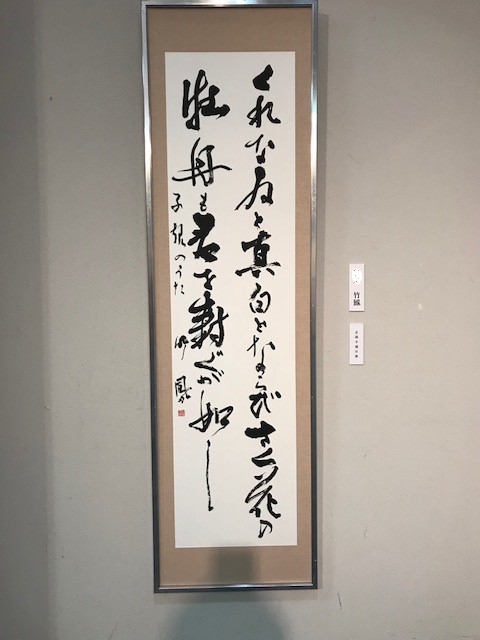 くれな為と真白とならびさく花の
牡丹も君を壽ぐが如し
子規のうた